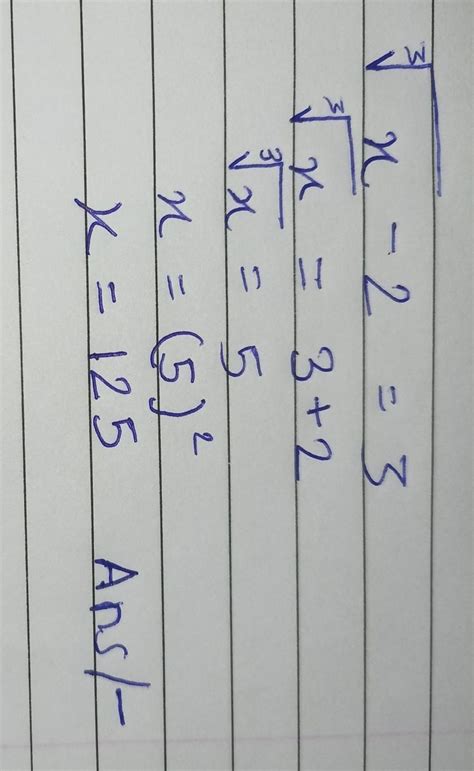 ∛x - 2 = 3
∛x = 3+2
∛x = 5
x = (5)²
x = 125 Ans/-